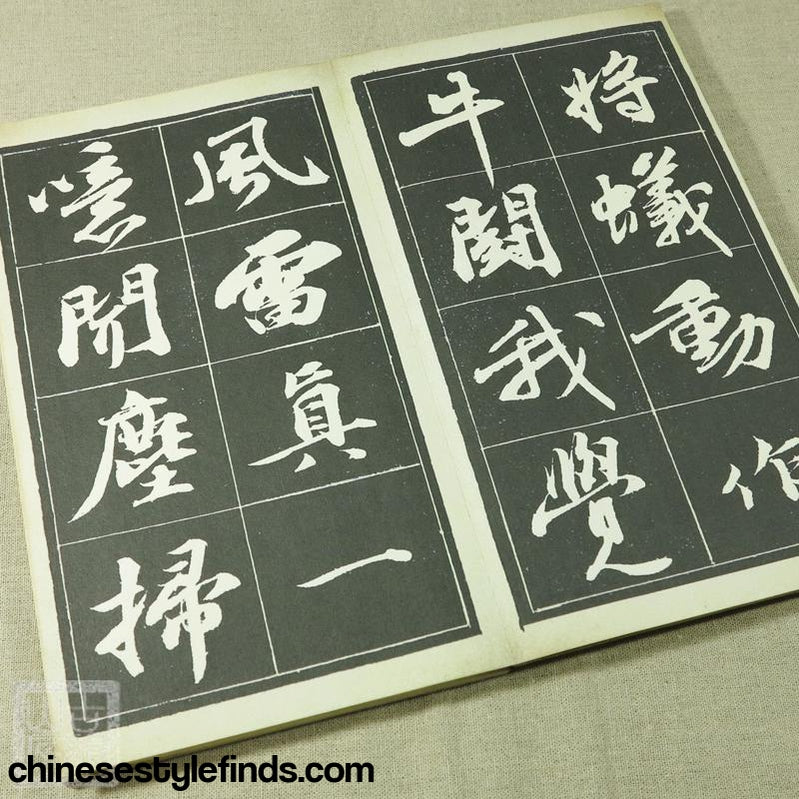 将蟻動作
牛鬭我覺
風雷眞一
噫聞塵掃
chinesestylefinds.com